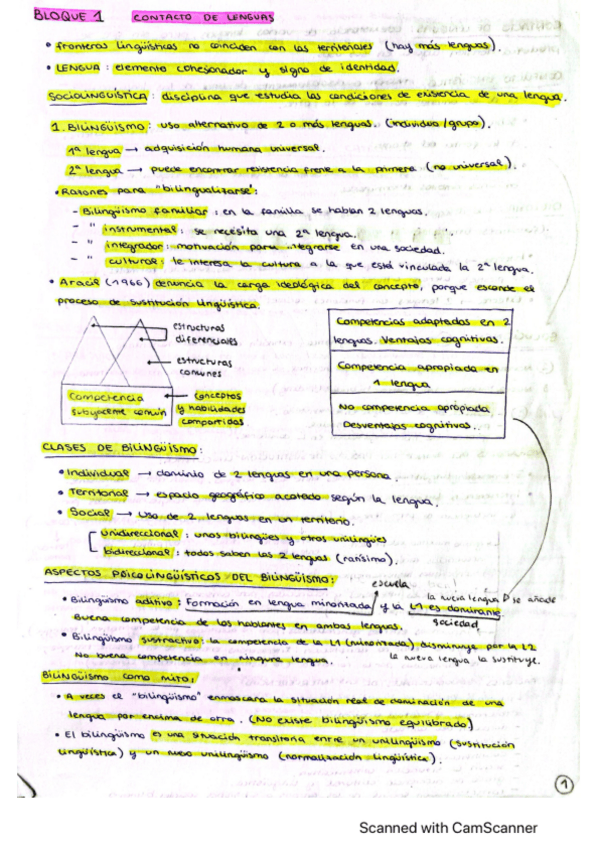 BLOQUE 1 CONTACTO DE LENGUAS
• fronteras lingüísticas no coinciden con las territoriales (hay más lenguas).
• LENGUA: elemento cohesonador y signo de identidad.
SOCIOLINGÜÍSTICA: disciplina que estudia las condiciones de existencia de una lengua.
1. BILINGÜISMO: uso alternativo de 2 o más lenguas. (individuo/grupo).
1ª lengua → adquisición humana universal.
2ª lengua → puede encontrar resistencia frente a la primera (no universal).
• Razones para "bilingualizarse":
- Bilingüismo familiar: en la familia se hablan 2 lenguas.
- " instrumental: se necesita una 2ª lengua.
- " integrador: motivación para integrarse en una sociedad.
- " cultural: le interesa la cultura a la que está vinculada la 2ª lengua.
• Aracil (1966) denuncia la carga ideológica del concepto, porque esconde el
proceso de sustitución lingüística.
estructuras
diferenciales
estructuras
comunes
Competencia
subyacente común
← conceptos
y habilidades
compartidas
Competencias adaptadas en 2
lenguas. Ventajas cognitivas.
Competencia apropiada en
1 lengua
No competencia apropiada
Desventajas cognitivas.
CLASES DE BILINGÜISMO:
• Individual → dominio de 2 lenguas en una persona.
• Territorial → espacio geográfico acotado según la lengua.
• Social → Uso de 2 lenguas en un territorio.
unidireccional: unos bilingües y otros unilingües
bidireccional: todos saben las 2 lenguas (rarísimo).
ASPECTOS PSICOLINGÜÍSTICOS DEL BILINGÜISMO:
escuela
la nueva lengua se añade
• Bilingüismo aditivo: Formación en lengua minorizada y la L1 es dominante
sociedad
Buena competencia de los hablantes en ambas lenguas.
• Bilingüismo sustractivo: la competencia de la L1 (minorizada) disminuye por la L2
No buena competencia en ninguna lengua. la nueva lengua la sustituye.
BILINGÜISMO COMO MITO:
• A veces el "bilingüismo" enmascara la situación real de dominación de una
lengua por encima de otra. (NO existe bilingüismo equilibrado)
• El bilingüismo es una situación transitoria entre un unilingüismo (sustitución
lingüística) y un nuevo unilingüismo (normalización lingüística).
1
Scanned with CamScanner